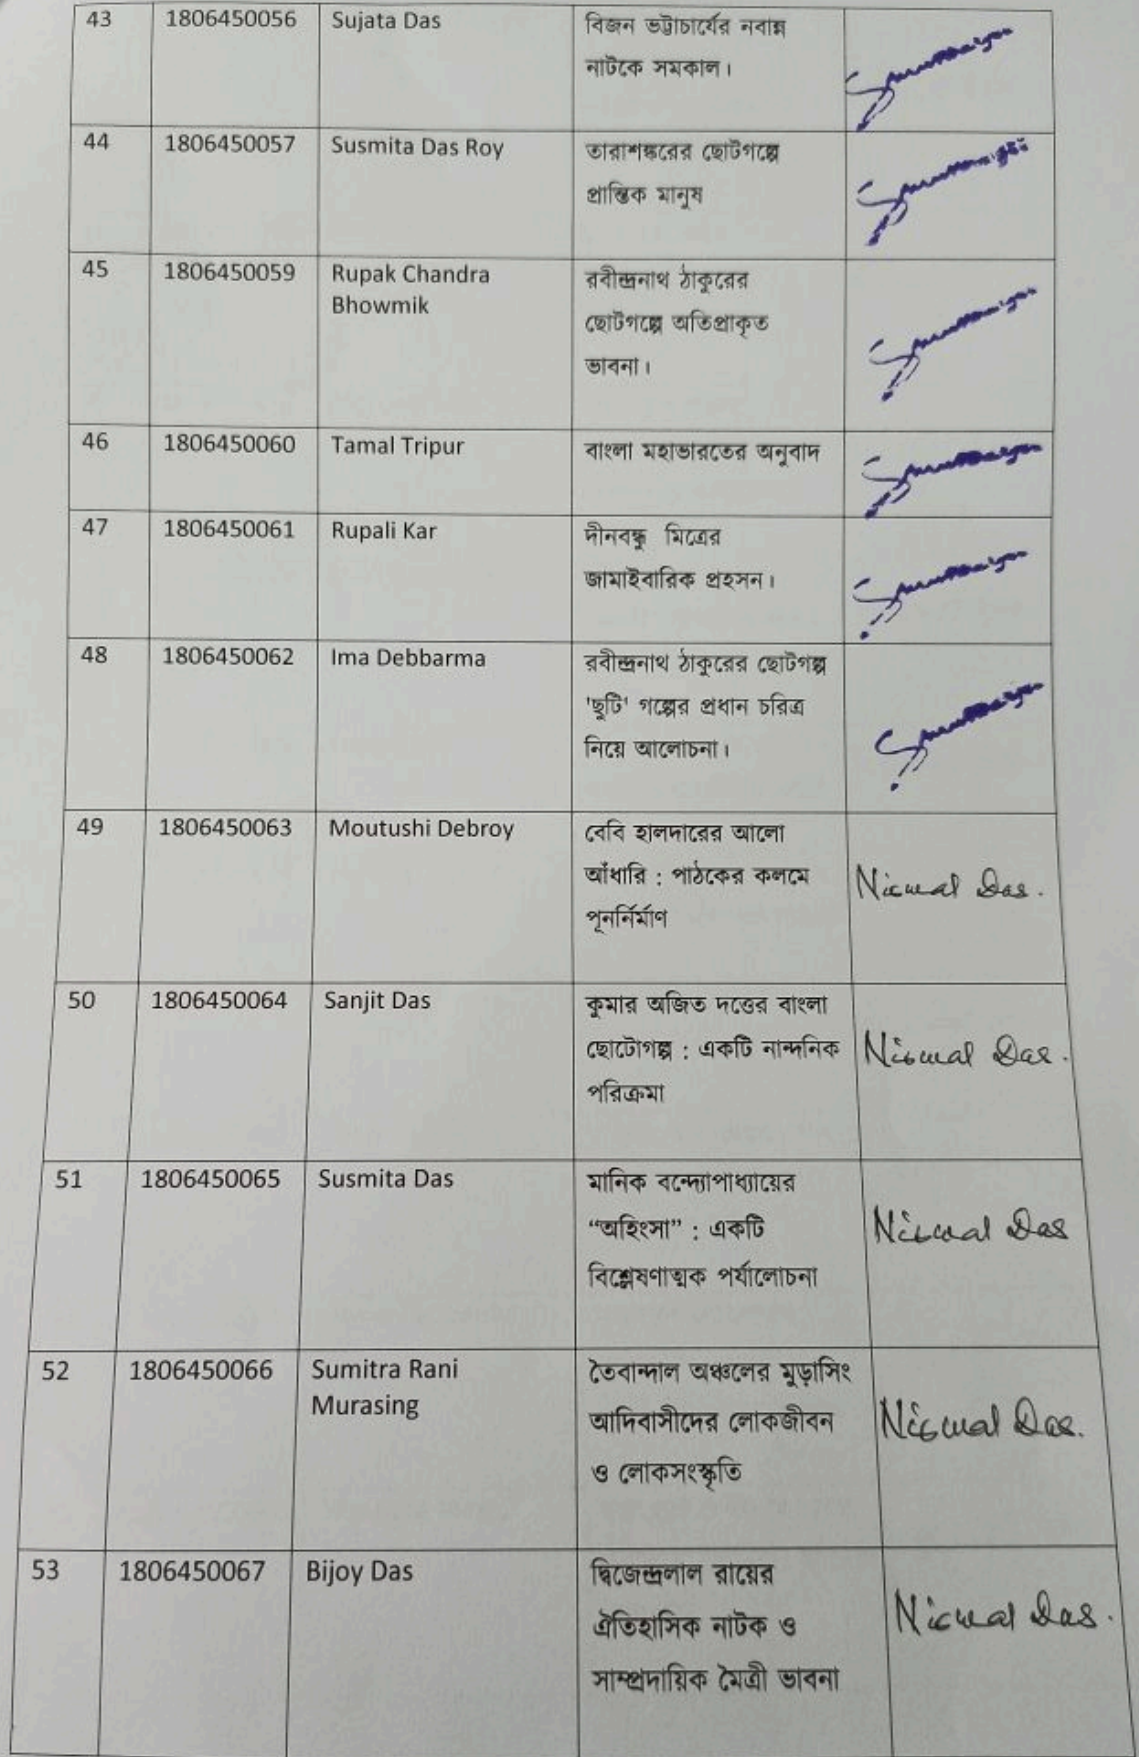 43 1806450056 Sujata Das বিজন ভট্টাচার্যের নবান্ন
নাটকে সমকাল।
44 1806450057 Susmita Das Roy তারাশঙ্করের ছোটগল্পে
প্রান্তিক মানুষ
45 1806450059 Rupak Chandra রবীন্দ্রনাথ ঠাকুরের
Bhowmik ছোটগল্পে অতিপ্রাকৃত
ভাবনা।
46 1806450060 Tamal Tripur বাংলা মহাভারতের অনুবাদ
47 1806450061 Rupali Kar দীনবন্ধু মিত্রের
জামাইবারিক প্রহসন।
48 1806450062 Ima Debbarma রবীন্দ্রনাথ ঠাকুরের ছোটগল্প
'ছুটি' গল্পের প্রধান চরিত্র
নিয়ে আলোচনা।
49 1806450063 Moutushi Debroy বেবি হালদারের আলো
আঁধারি : পাঠকের কলমে Nirmal Das.
পূনর্নির্মাণ
50 1806450064 Sanjit Das কুমার অজিত দত্তের বাংলা
ছোটোগল্প : একটি নান্দনিক Nirmal Das.
পরিক্রমা
51 1806450065 Susmita Das মানিক বন্দ্যোপাধ্যায়ের
“অহিংসা” : একটি Nirmal Das
বিশ্লেষণাত্মক পর্যালোচনা
52 1806450066 Sumitra Rani তৈবান্দাল অঞ্চলের মুড়াসিং
Murasing আদিবাসীদের লোকজীবন Nirmal Das.
ও লোকসংস্কৃতি
53 1806450067 Bijoy Das দ্বিজেন্দ্রলাল রায়ের
ঐতিহাসিক নাটক ও Nirmal Das.
সাম্প্রদায়িক মৈত্রী ভাবনা